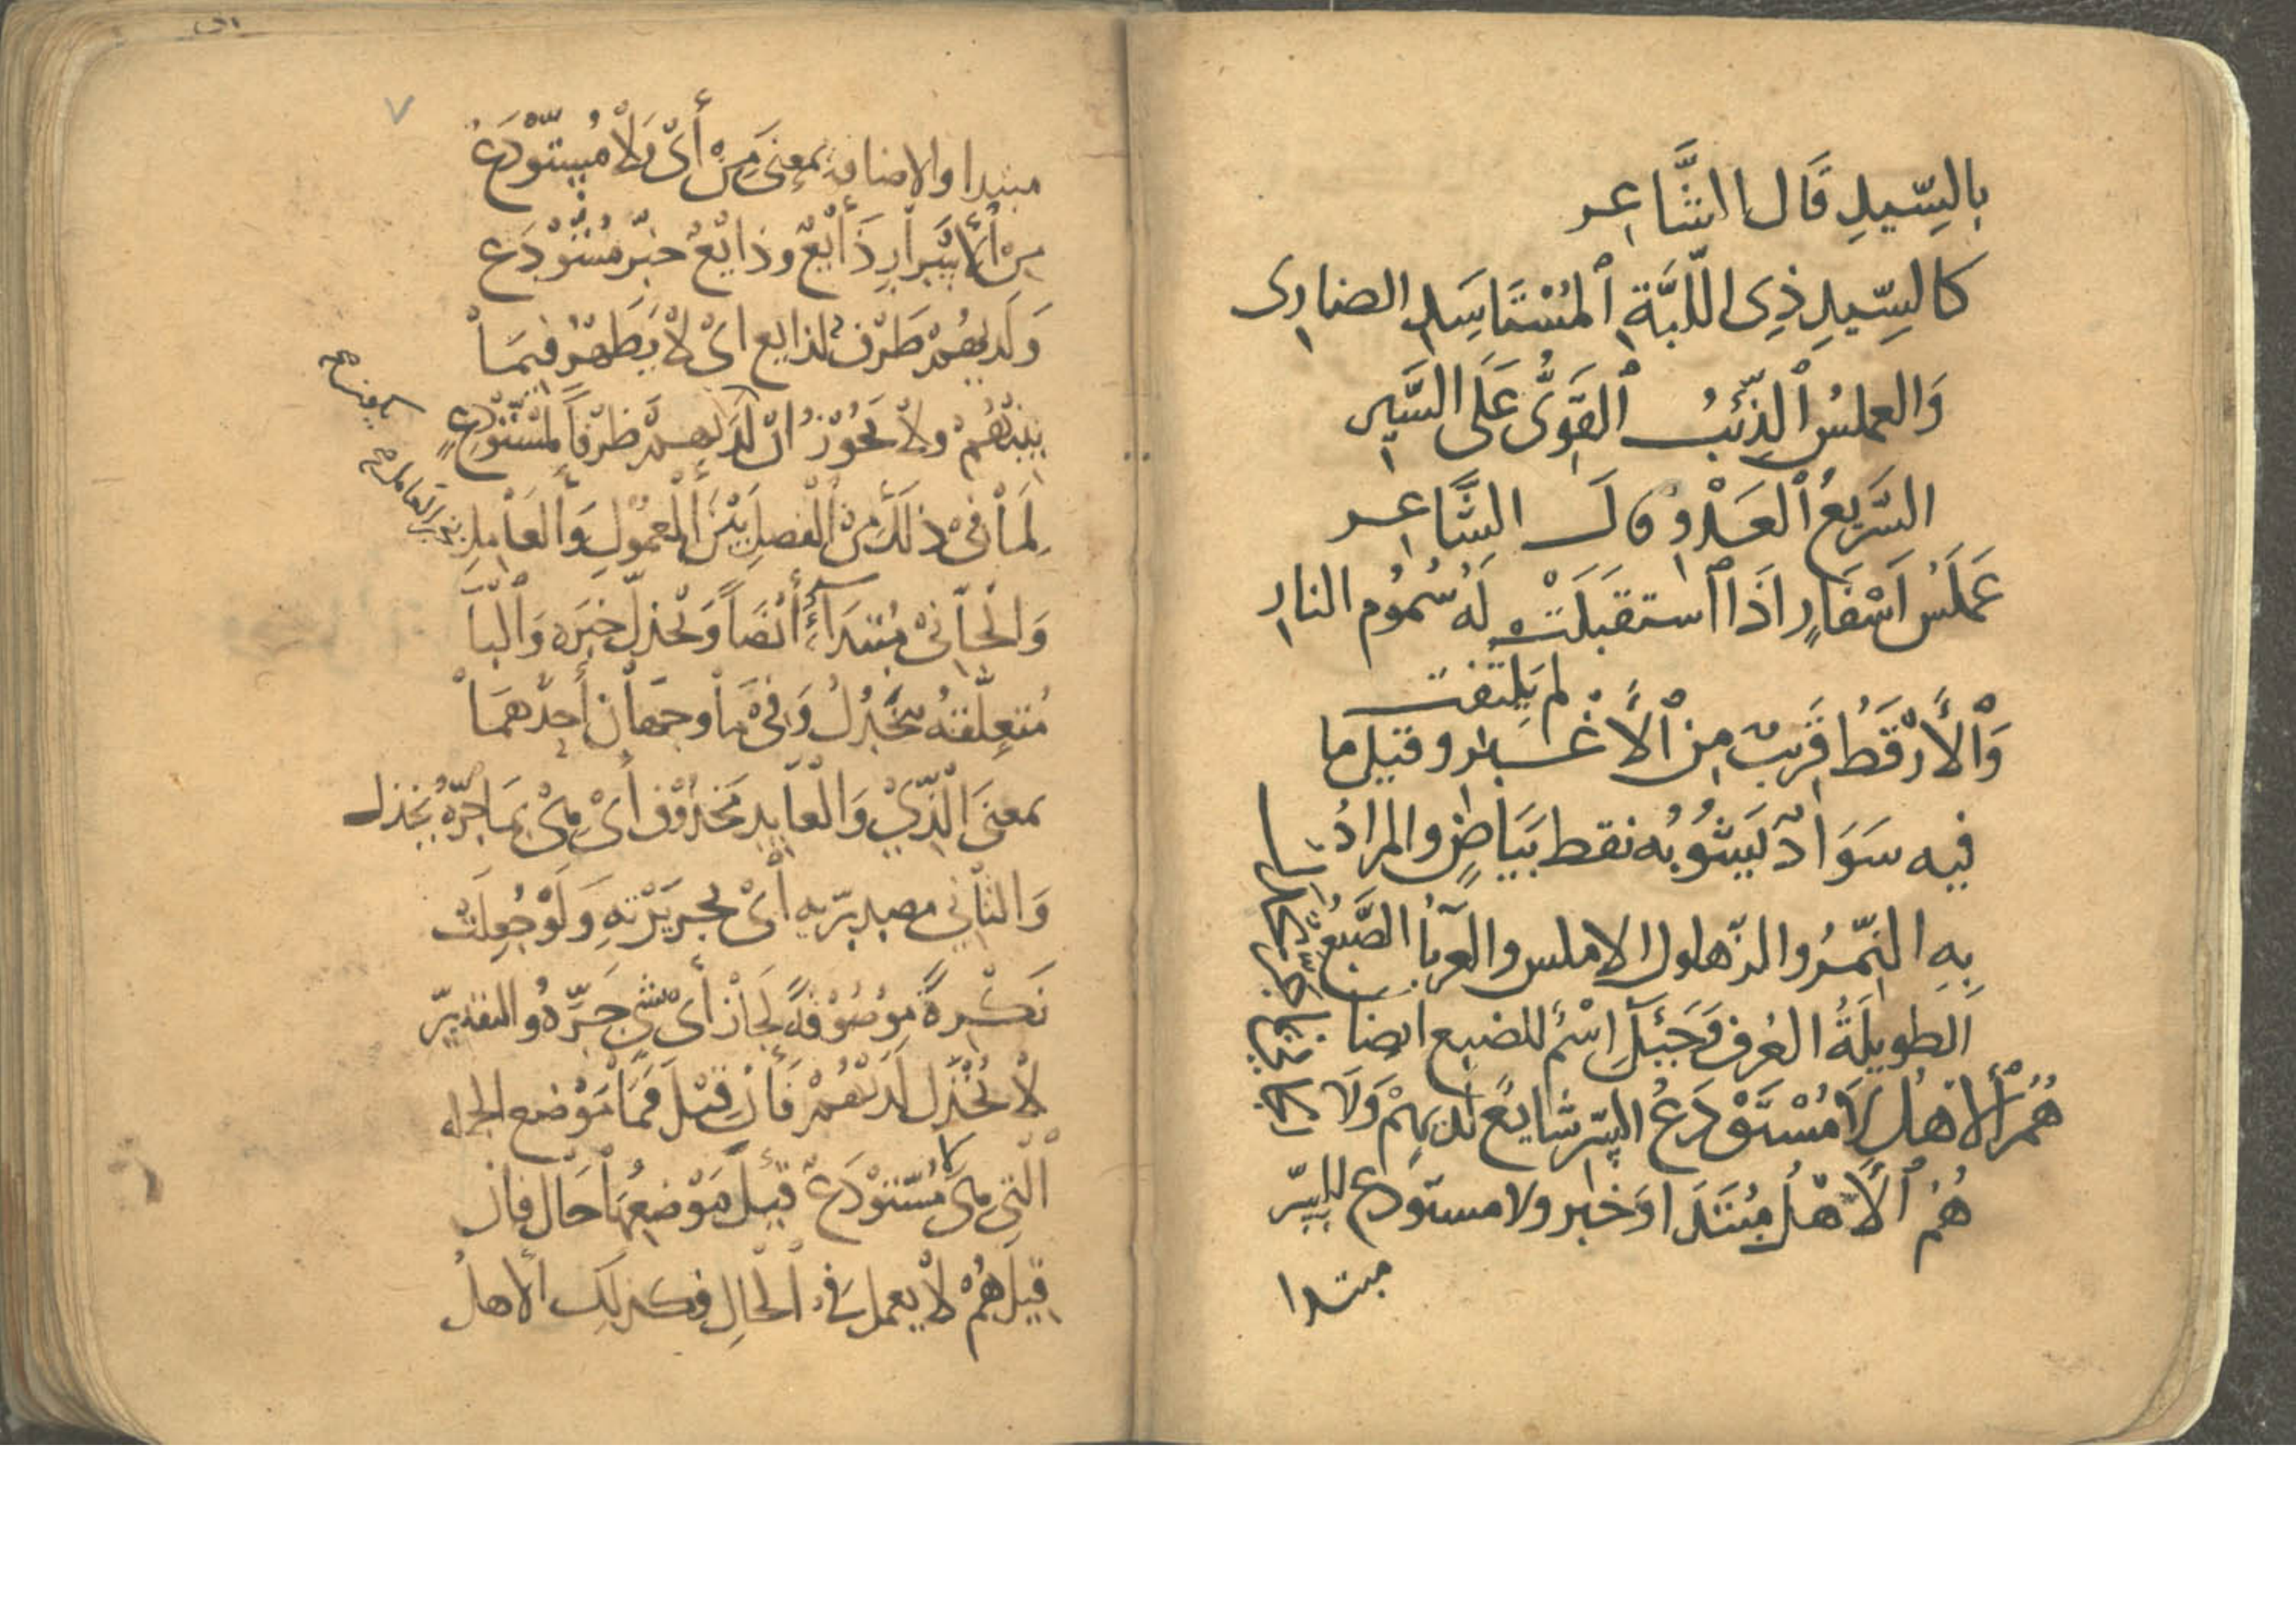 بِالسِّيدِ قَالَ الشَّاعِر
كالسِّيدِ ذِى اللِّبَّةِ المُسْتَاسَدِ الضارى
وَالعملسُ الذِّئبُ القَوِىُّ عَلَى السَّيرِ
السَّرِيعُ العَدْو قال الشَّاعِر
عَمَلَسُ اَسْفَارٍ اذَا استقبَلَتْ لَه سُمُوم النار
لم يَلتفت
وَالأَرْقَطُ قَرِيبٌ مِن الأَغْبر وقيل ما
فيه سَوَادٌ يَشُوبُه نقط بَيَاضٍ والمرادُ
بِهِ النَّمِرُ والزهلول الاملس والعرفاُ الضَّبُع
الطويلَةُ العُرف وَجَيْئَل اِسْمٌ للضبع ايضا
هُمُ الأهْلُ لاَ مُسْتَوْدَعُ السِّرِّ شايعٌ لديهِمْ وَلاَ
هُمُ الأَهْلُ مُبتَدَا وَخبر ولا مستودع للسِّرّ
مبتدا
مبتدا والاضافة بمعنى مِنْ أىْ وَلاْ مُسْتَوْدَعُ
مِنْ الأسْرَارِ ذَايْعٌ وذايْعٌ خبر مُسْتَوْدَع
وَلَديهمْ ظرْف لذايع اىْ لاْ يَظهرْ فيمَاْ
بينهُمْ ولاْ يَجُوْزُ انْ لَديهمْ ظرْفاً لمسْتَوْدعٍ
لِمَاْ فىْ ذلَكَ مِنْ الفصلِ بَيْنَ المعمُولِ وَالعَاْمِلِ
وَالْجَاْنىْ مُبتدَاءٌ أيْضَاً وَيُخْذلُ خبَره وَالْبَا
مُتعِلّقةُ بيُخْذلُ وَفىْ مَا وجهَاْنِ أحدُهمَاْ
بمعنىَ الّذِيْ وَالْعاْيد مَحْذُوْف أىْ بمَا جرّهُ يُخذل
وَالثاْنِي مصدريّه أىْ بجرِيْرَتهِ وَلَوْ جُعِلَتْ
نَكْرةً مَوْصُوْفَةً لجَازْ أىْ بشىٍ جَرَّهُ والتقديرّ
لاْ يُخْذَل لَدَيْهُمْ فَاْنِ قِيْلَ فمَاْ مَوْضع الجمله
اَلْتي هىَ لاَ مُسْتَوْدَعْ قِيْلَ مَوْضعُهَاْ حَال فان
قيلَ هُمْ لاْ يعمل فى الْحَالِ فكذلك الأهلُ